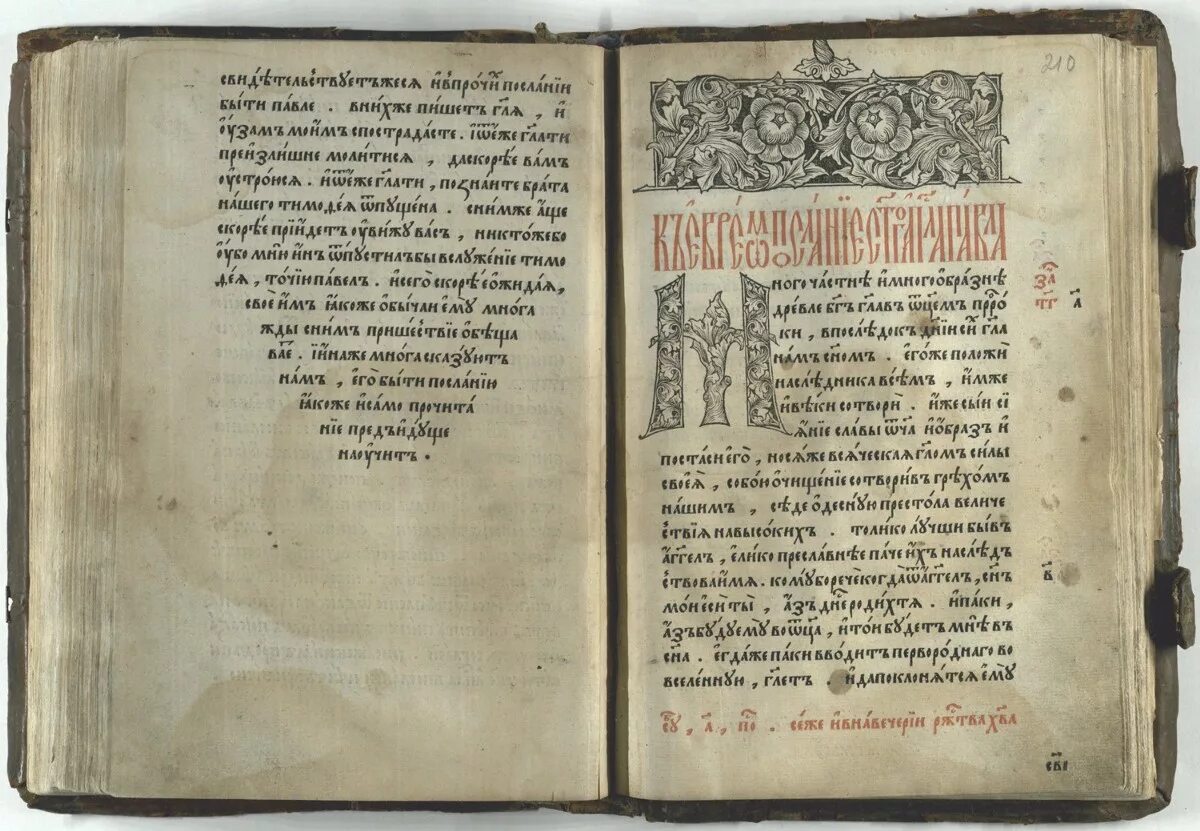 свидѣтельствуетъжеся ивпрочии посланіи
быти павле . внихже пишетъ гл҃я , и
оузамъ моимъ спострадасте . иѿеже гл҃ати
преизлишне молитися , даскорѣе вамъ
оустроюся . иѿеже гл҃ати , познаите брата
нашего тимоѳея ѿпущена . снимже аще
скорѣе пріидетъ оувижу васъ , никтожебо
оубо мню инъ ѿпустилъбы вслуженіе тимо
ѳея , точіюпавелъ . иегоскорѣеожидая ,
своеимъ іакоже обычаи ему многа
жды сними пришествіе обѣща
вае . іинаже многа сказуютъ
намъ , его быти посланію
іакоже исамо прочита
ніе предъидуще
научитъ .
210
къ еврѣомъ посланіе ст҃го ап҃ла павла
Многочастнѣ имногообразнѣ
древле бг҃ъ гл҃авъ ѿцемъ прр҃о
ки , впослѣдокъ днїи сихъ гл҃а
намъ сн҃омъ . егоже положи
наслѣдника всѣмъ , имже
ивѣки сотвори . ижесыи сі
яніе славы ѿча иобразъ и
постаси его , носяже всяческая гл҃омъ силы
своея , собою очищеніе сотворивъ грѣхомъ
нашимъ , сѣде одесную престола величе
ствія навысокихъ . толико лучши бывъ
аг҃гелъ , елико преславнѣе паче ихъ наслѣдъ
ствова имя . комуборечекогдаѿаг҃гелъ , сн҃ъ
мои еси ты , азъ дн҃есь родихтя . ипаки ,
азъ буду ему во ѿца , и тои будетъ мнѣ въ
сн҃а . егдаже паки вводитъ первороднаго во
вселенную , гл҃етъ . идапоклонятся ему
зач҃
тг
а
в
су , а , по . сеже ивнавечеріи рж҃тва хв҃а
свї